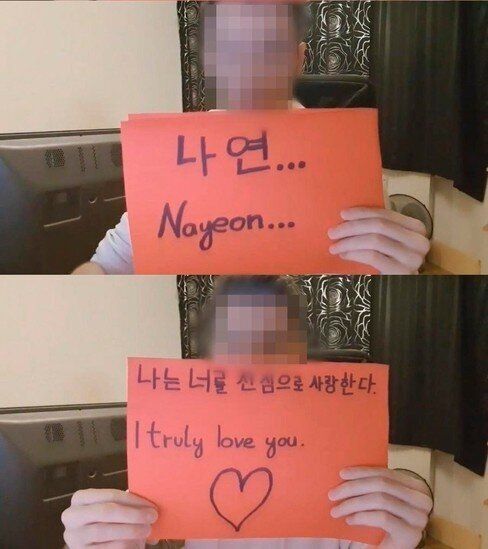 나연...
Nayeon...
나는 너를 진심으로 사랑한다.
I truly love you.